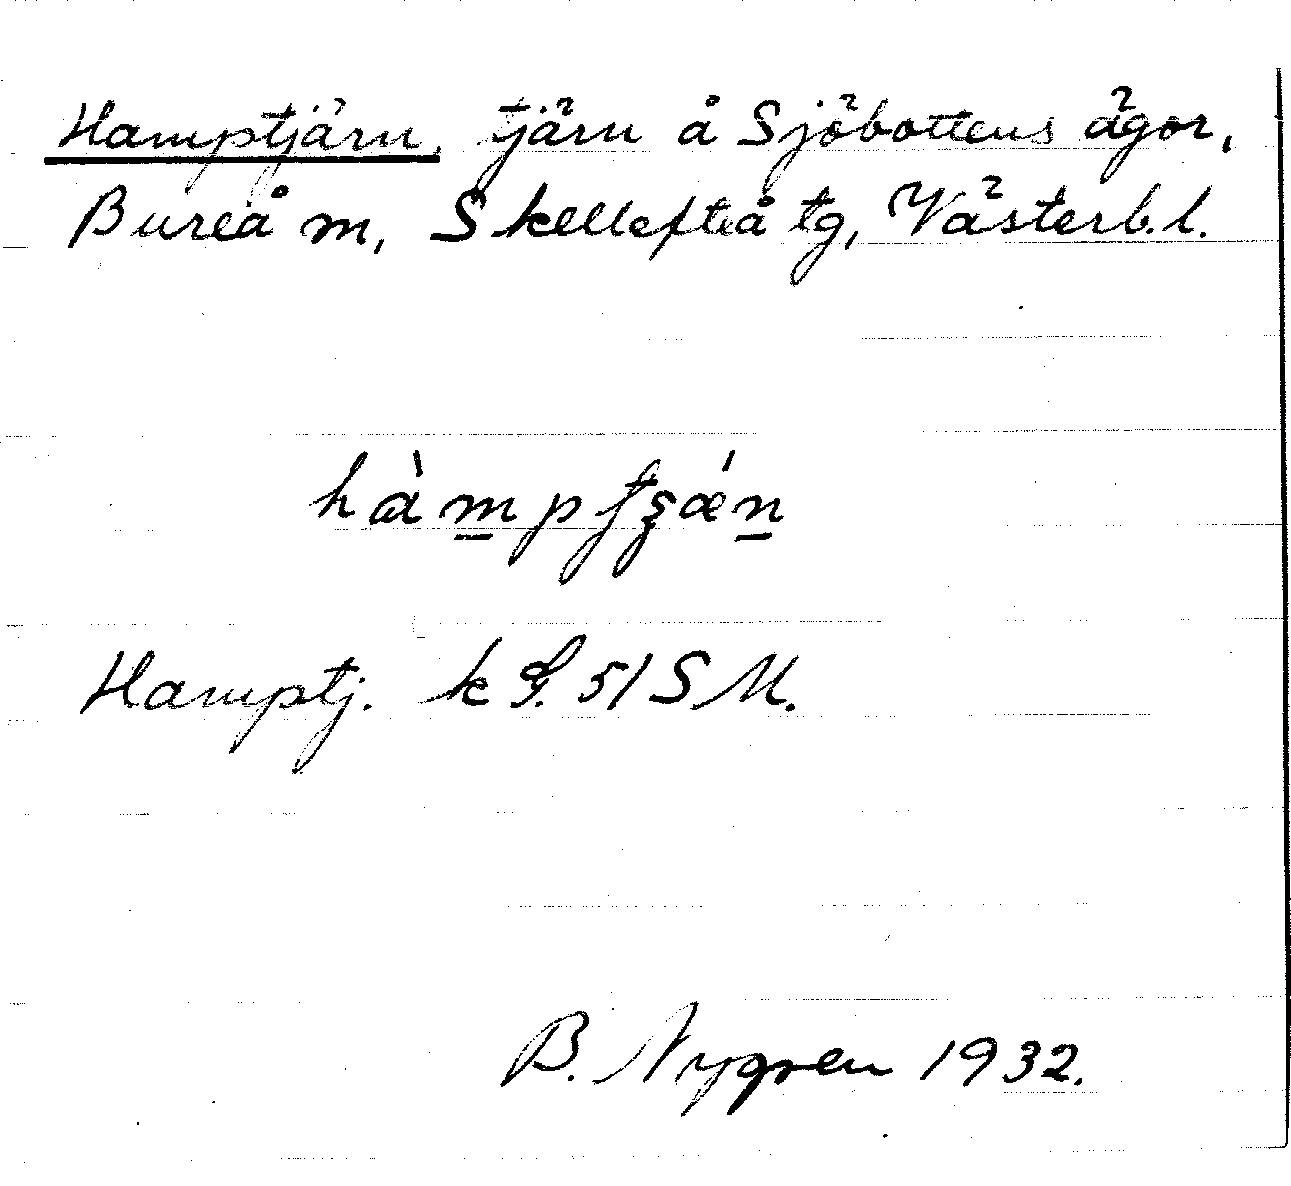 Hamptjärn, tjärn å Sjöbottens ägor,
Bureå m, Skellefteå tg, Västerb.l.
Hamptj. k G. 51 S M.
B. Nygren 1932.